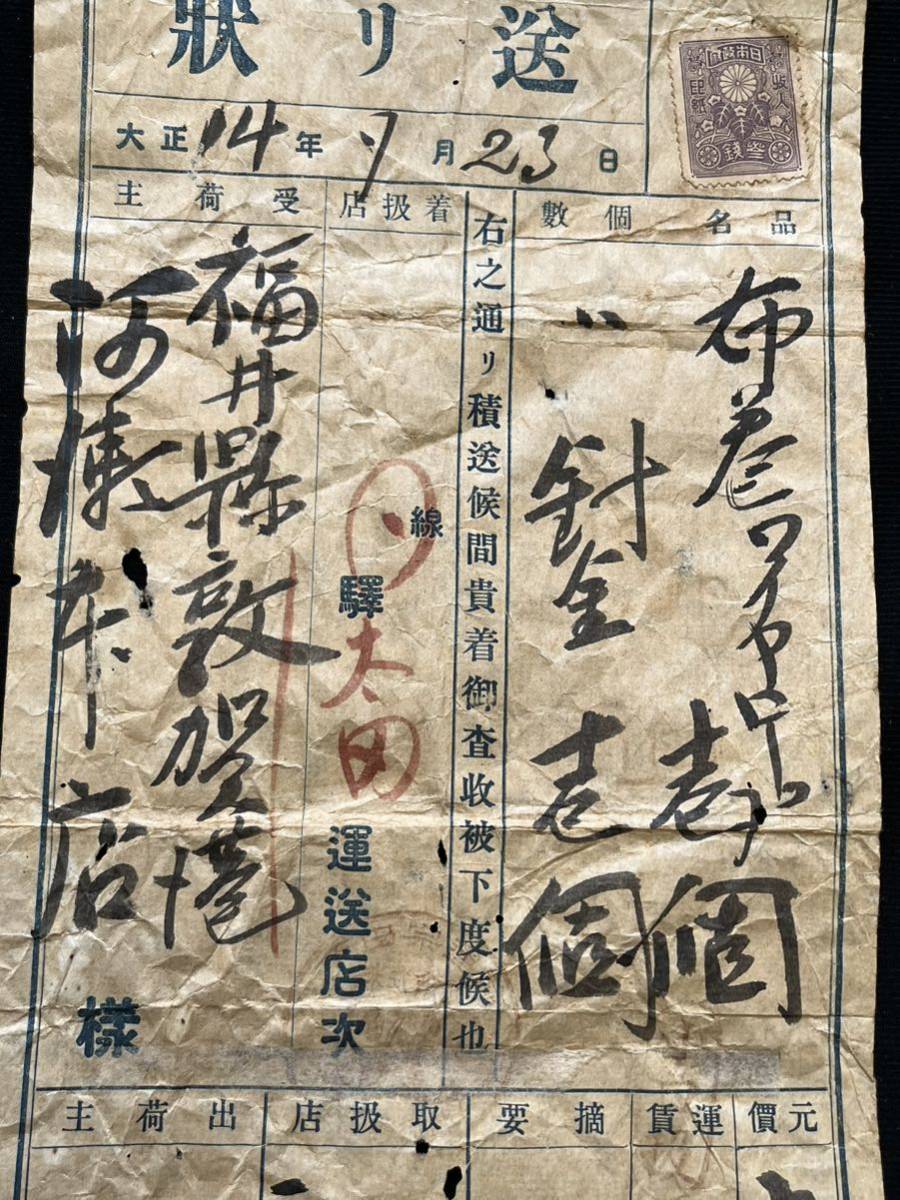 送リ狀
日本帝國
收入
印紙
參錢
大正14年9月23日
品名
個數
布巻ワイヤロープ 壱個
〃 針金 壱個
右之通リ積送候間貴着御査收被下度候也
着扱店
線
驛
太田
運送店次
受荷主
福井縣敦賀港
本店
樣
元價
運賃
摘要
取扱店
出荷主